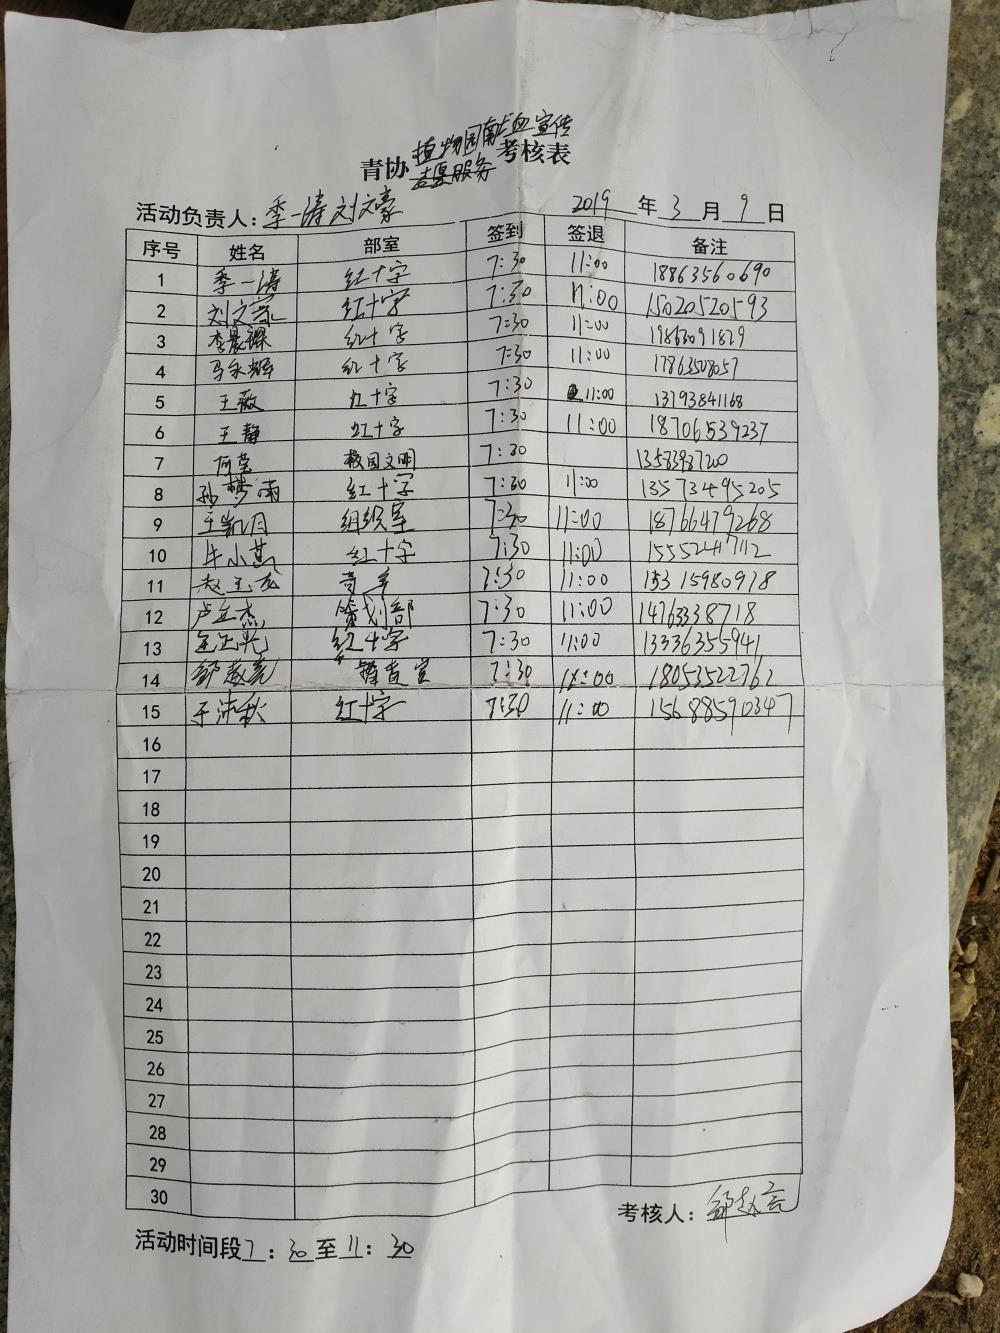 植物园献血宣传
青协 志愿服务 考核表
活动负责人：季一涛 刘文豪 2019 年 3 月 9 日
序号 姓名 部室 签到 签退 备注
1 季一涛 红十字 7:30 11:00 18863560690
2 刘文豪 红十字 7:30 11:00 15020520593
3 李晨 红十字 7:30 11:00
4 马永辉 红十字 7:30 11:00 17863508057
5 王薇 红十字 7:30 11:00 13793841168
6 王静 红十字 7:30 11:00 18706539237
7 何莹 校园文明 7:30 13583987200
8 孙梦雨 红十字 7:30 11:00 13573495205
9 王凯月 组织部 7:30 11:00 18766479268
10 牛小燕 红十字 7:30 11:00 15552417112
11 赵玉龙 青年 7:30 11:00 15315980978
12 卢立杰 策划部 7:30 11:00 14763338718
13 红十字 7:30 11:00 13336355941
14 邹赵亮 7:30 11:00 18053522762
15 于沛秋 红十字 7:30 11:00 15688590347
16
17
18
19
20
21
22
23
24
25
26
27
28
29
30
考核人：邹赵亮
活动时间段 7：30 至 11：30